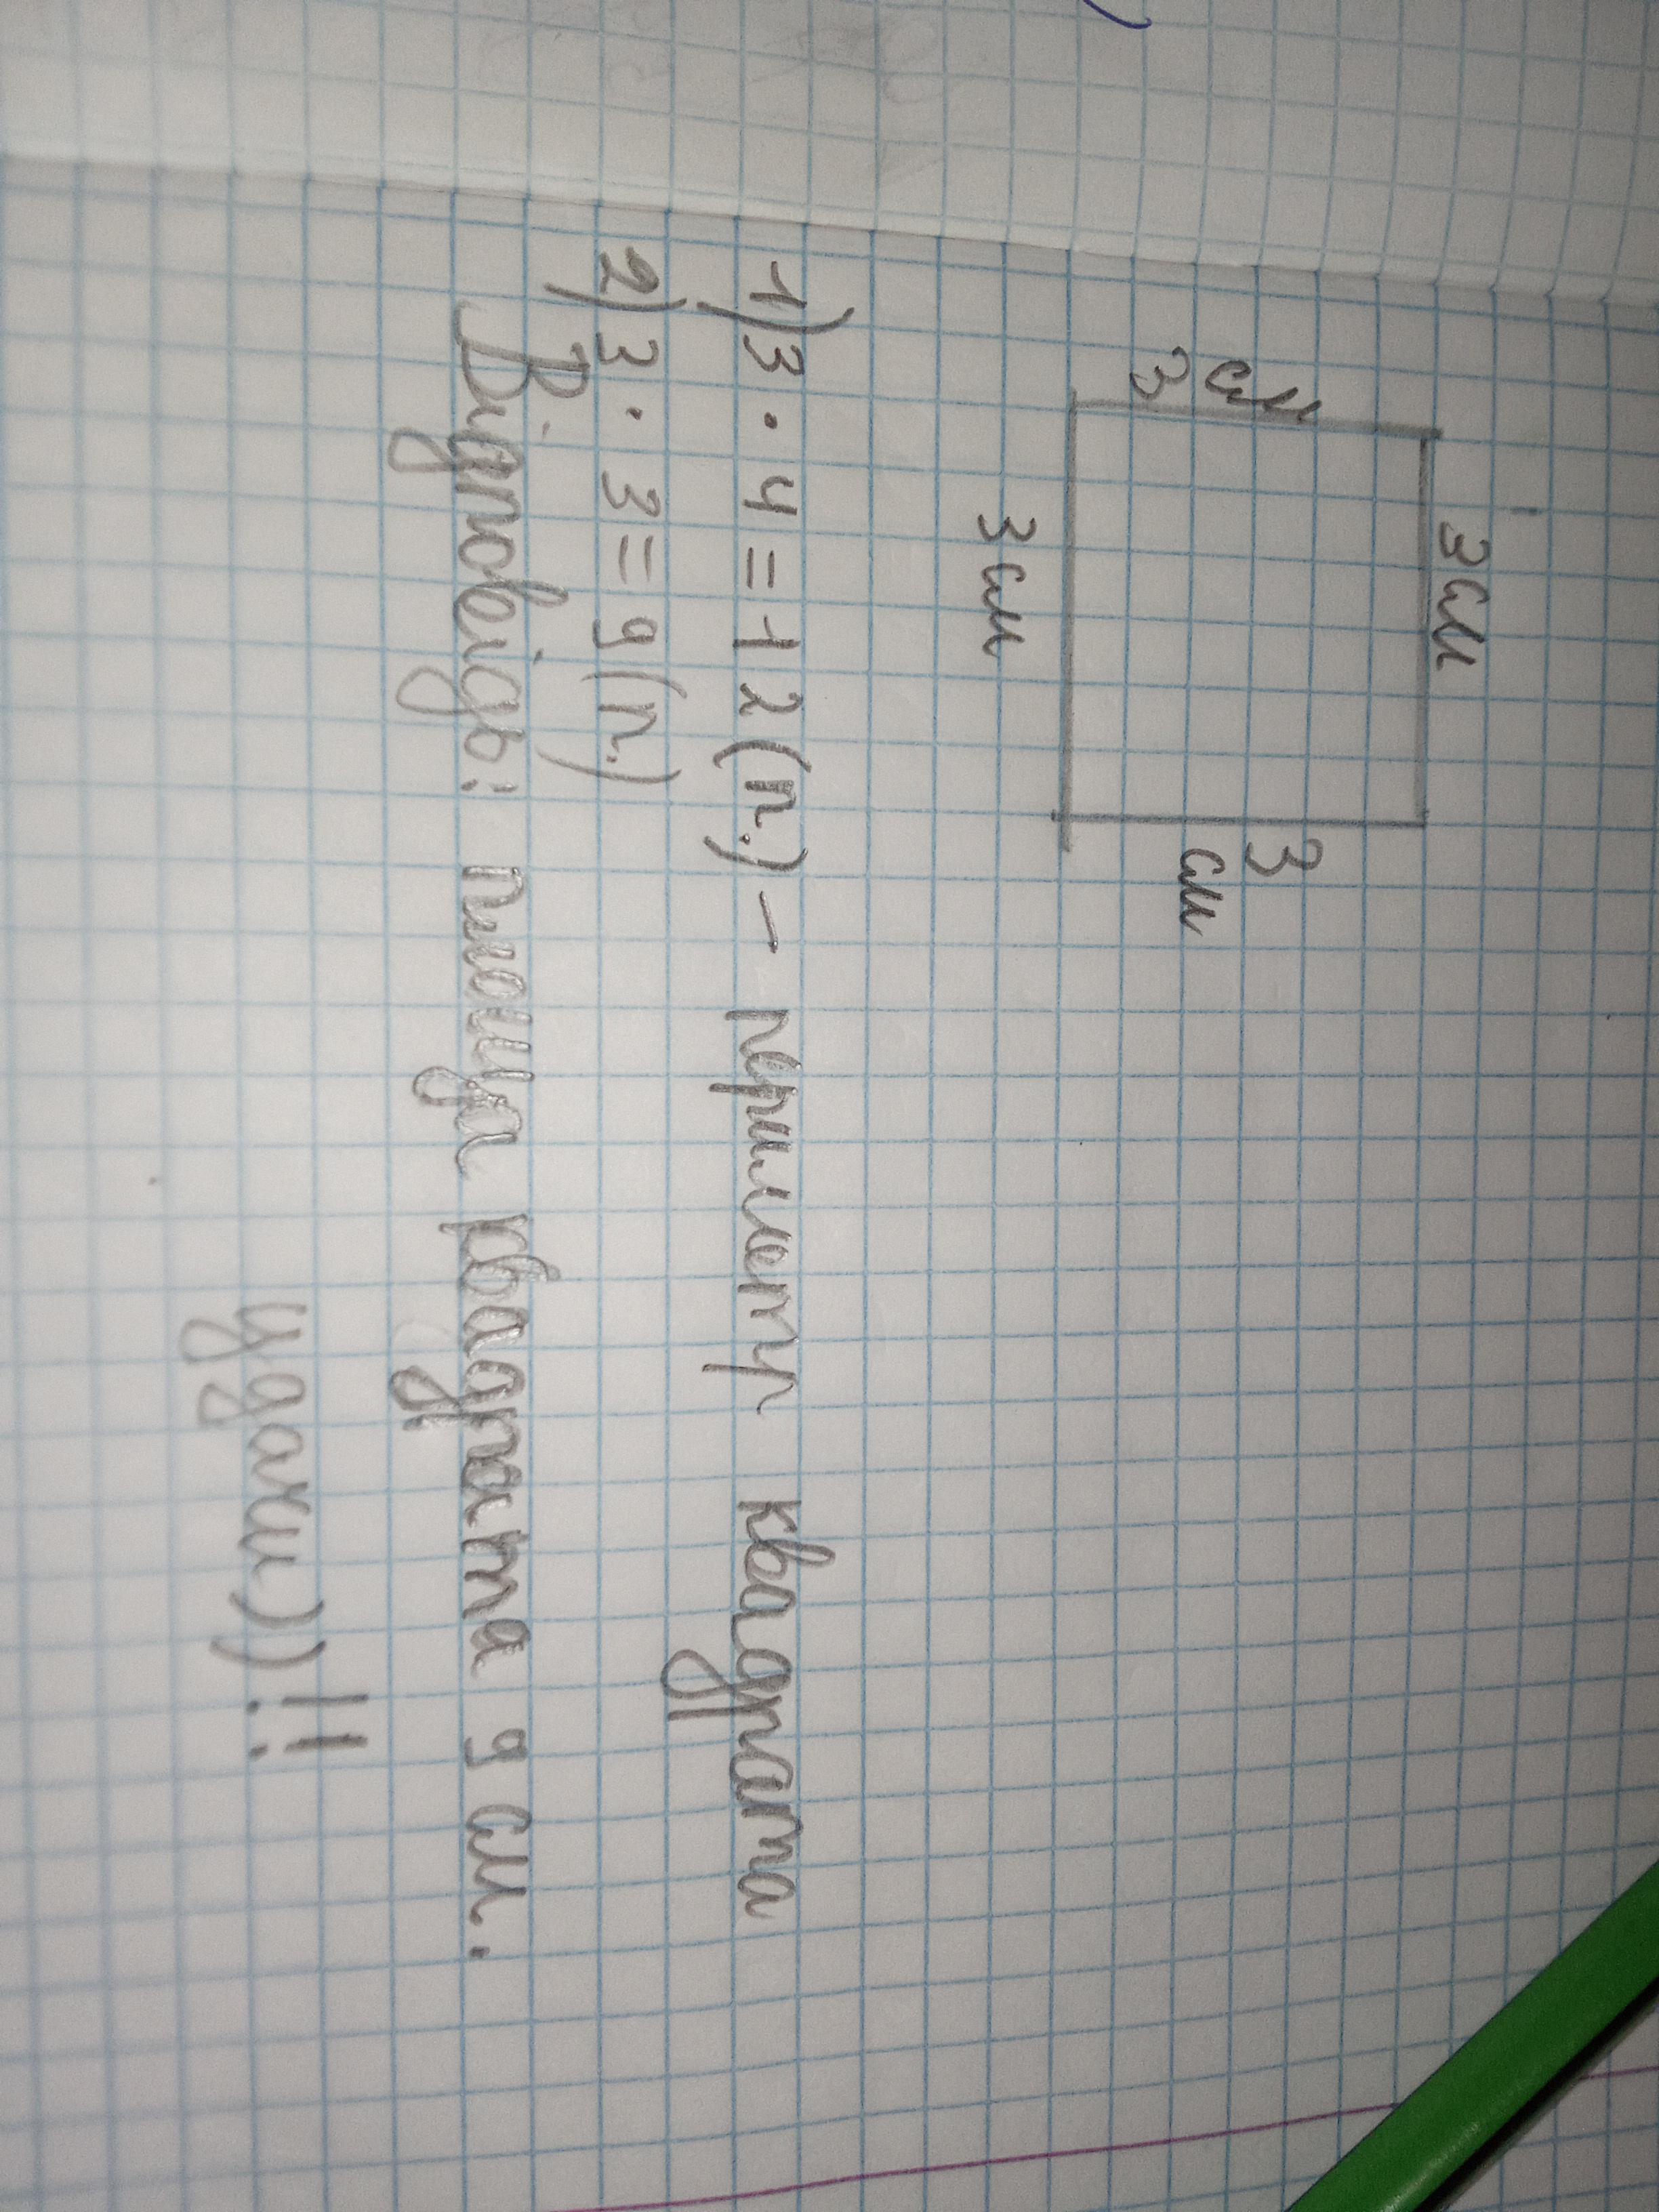 3 см
3 см
3
см
3 см
1) 3 · 4 = 12 (п.) – периметр квадрата
2) 3 · 3 = 9 (п.)
Відповідь: площа квадрата 9 см.
удачи))!!